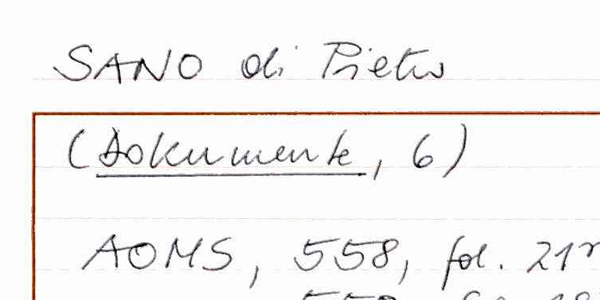 SANO di Pietro
(Dokumente, 6)
AOMS, 558, fol. 21r